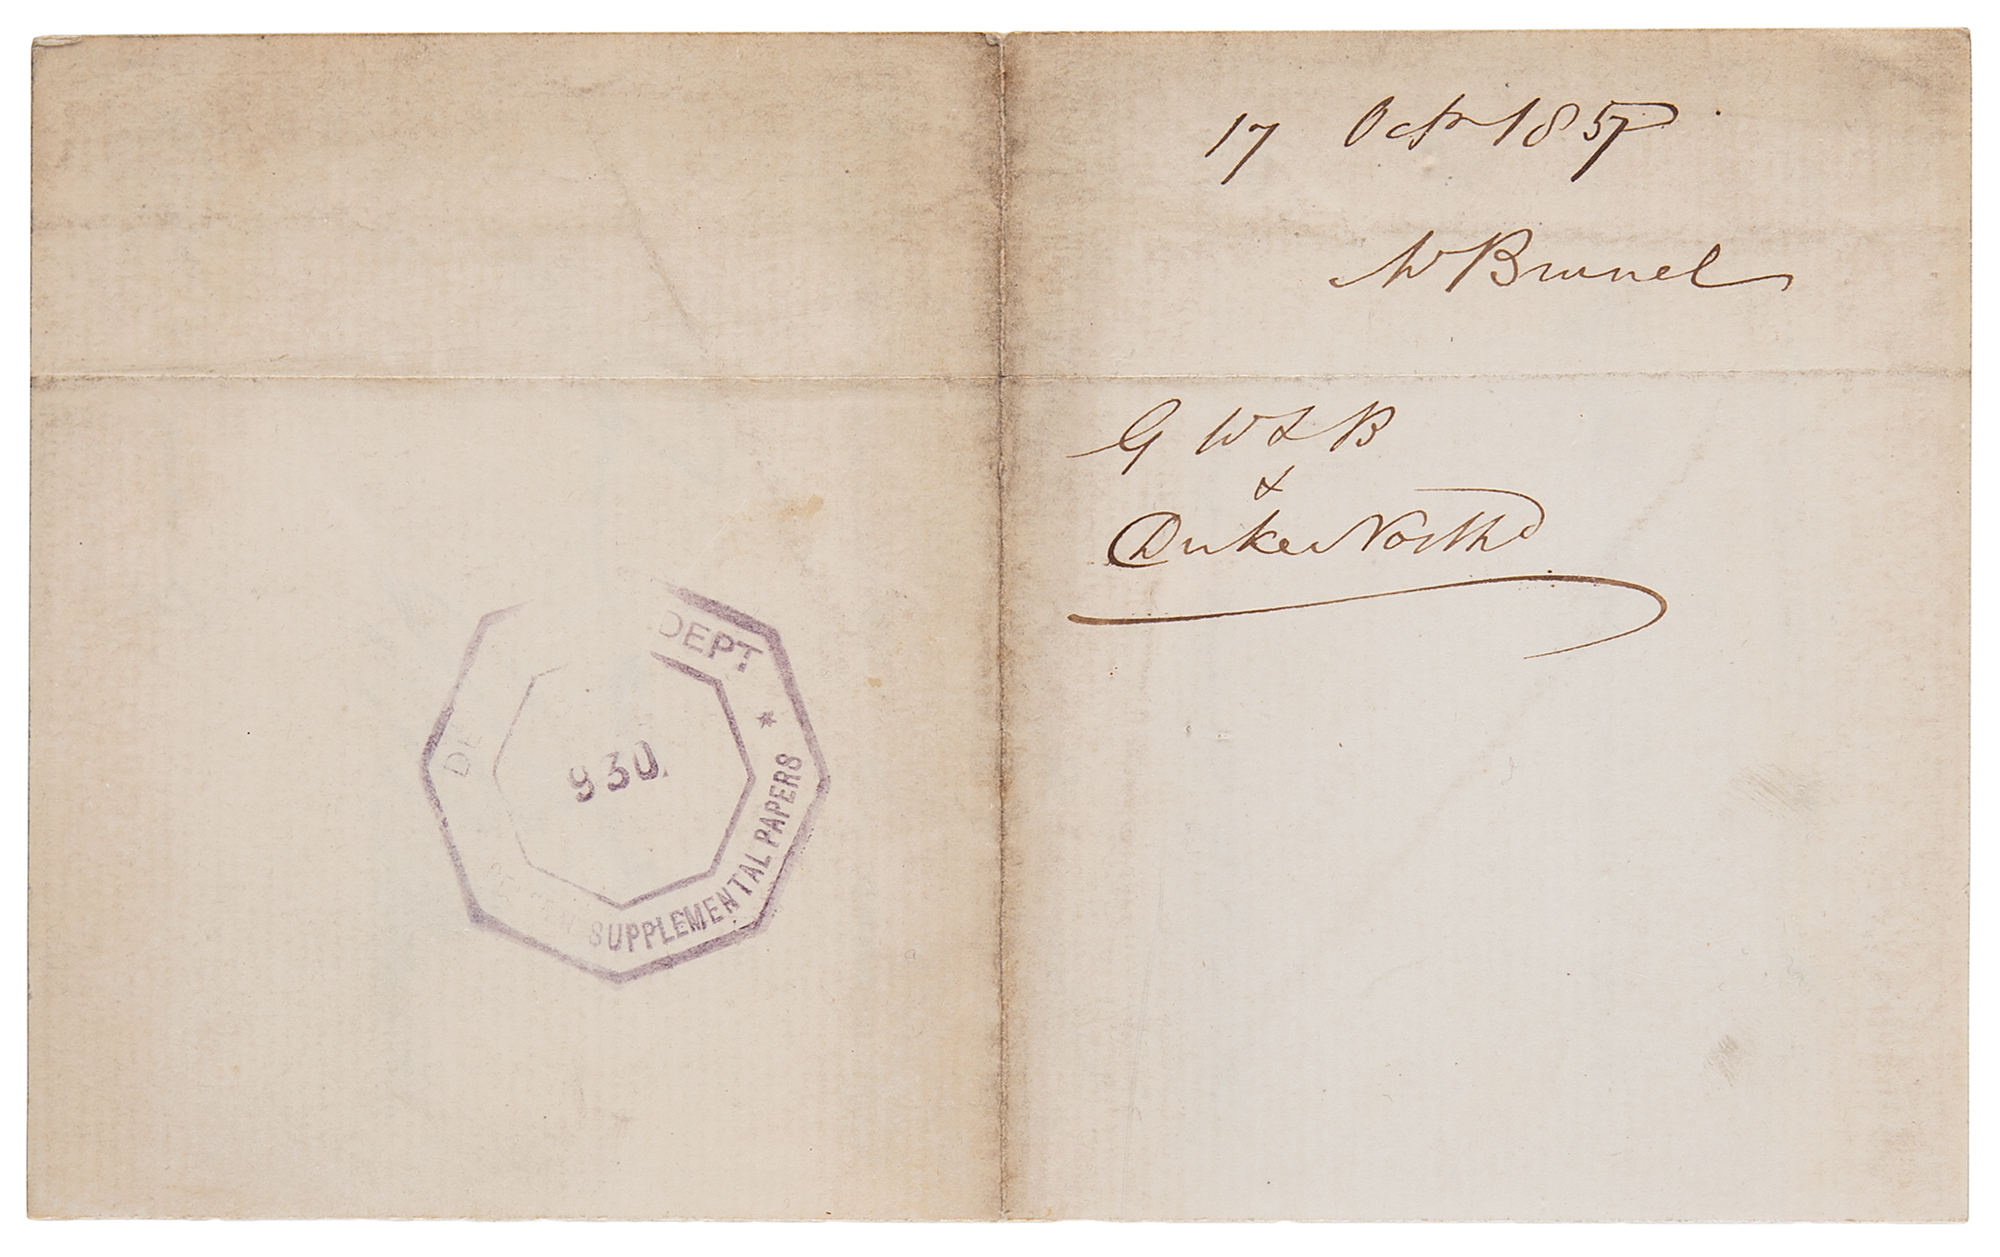 DEPT
*
SUPPLEMENTAL PAPERS
930.
17 Octr 1857
Mr Brunel
G W & B
&
Duke Northd